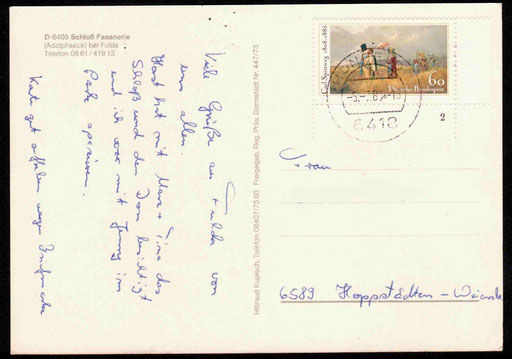 D-6405 Schloß Fasanerie
(Adolphseck) bei Fulda
Telefon 06 61 / 419 13
Viele Grüße aus Fulda von
uns allen.
Horst hat mit Marc + Tina das
Schloß und den Dom besichtigt
und ich war mit Jenny im
Park spazieren.
Karte gut aufheben wegen Briefmarke
Hiltraud Kupisch, Telefon 06407/75 60 Freigegeb. Reg. Präs. Darmstadt Nr. 447/73
Carl Spitzweg 1808-1885
60
Deutsche Bundespost
6418
2
Frau
6589 Hoppstädten-